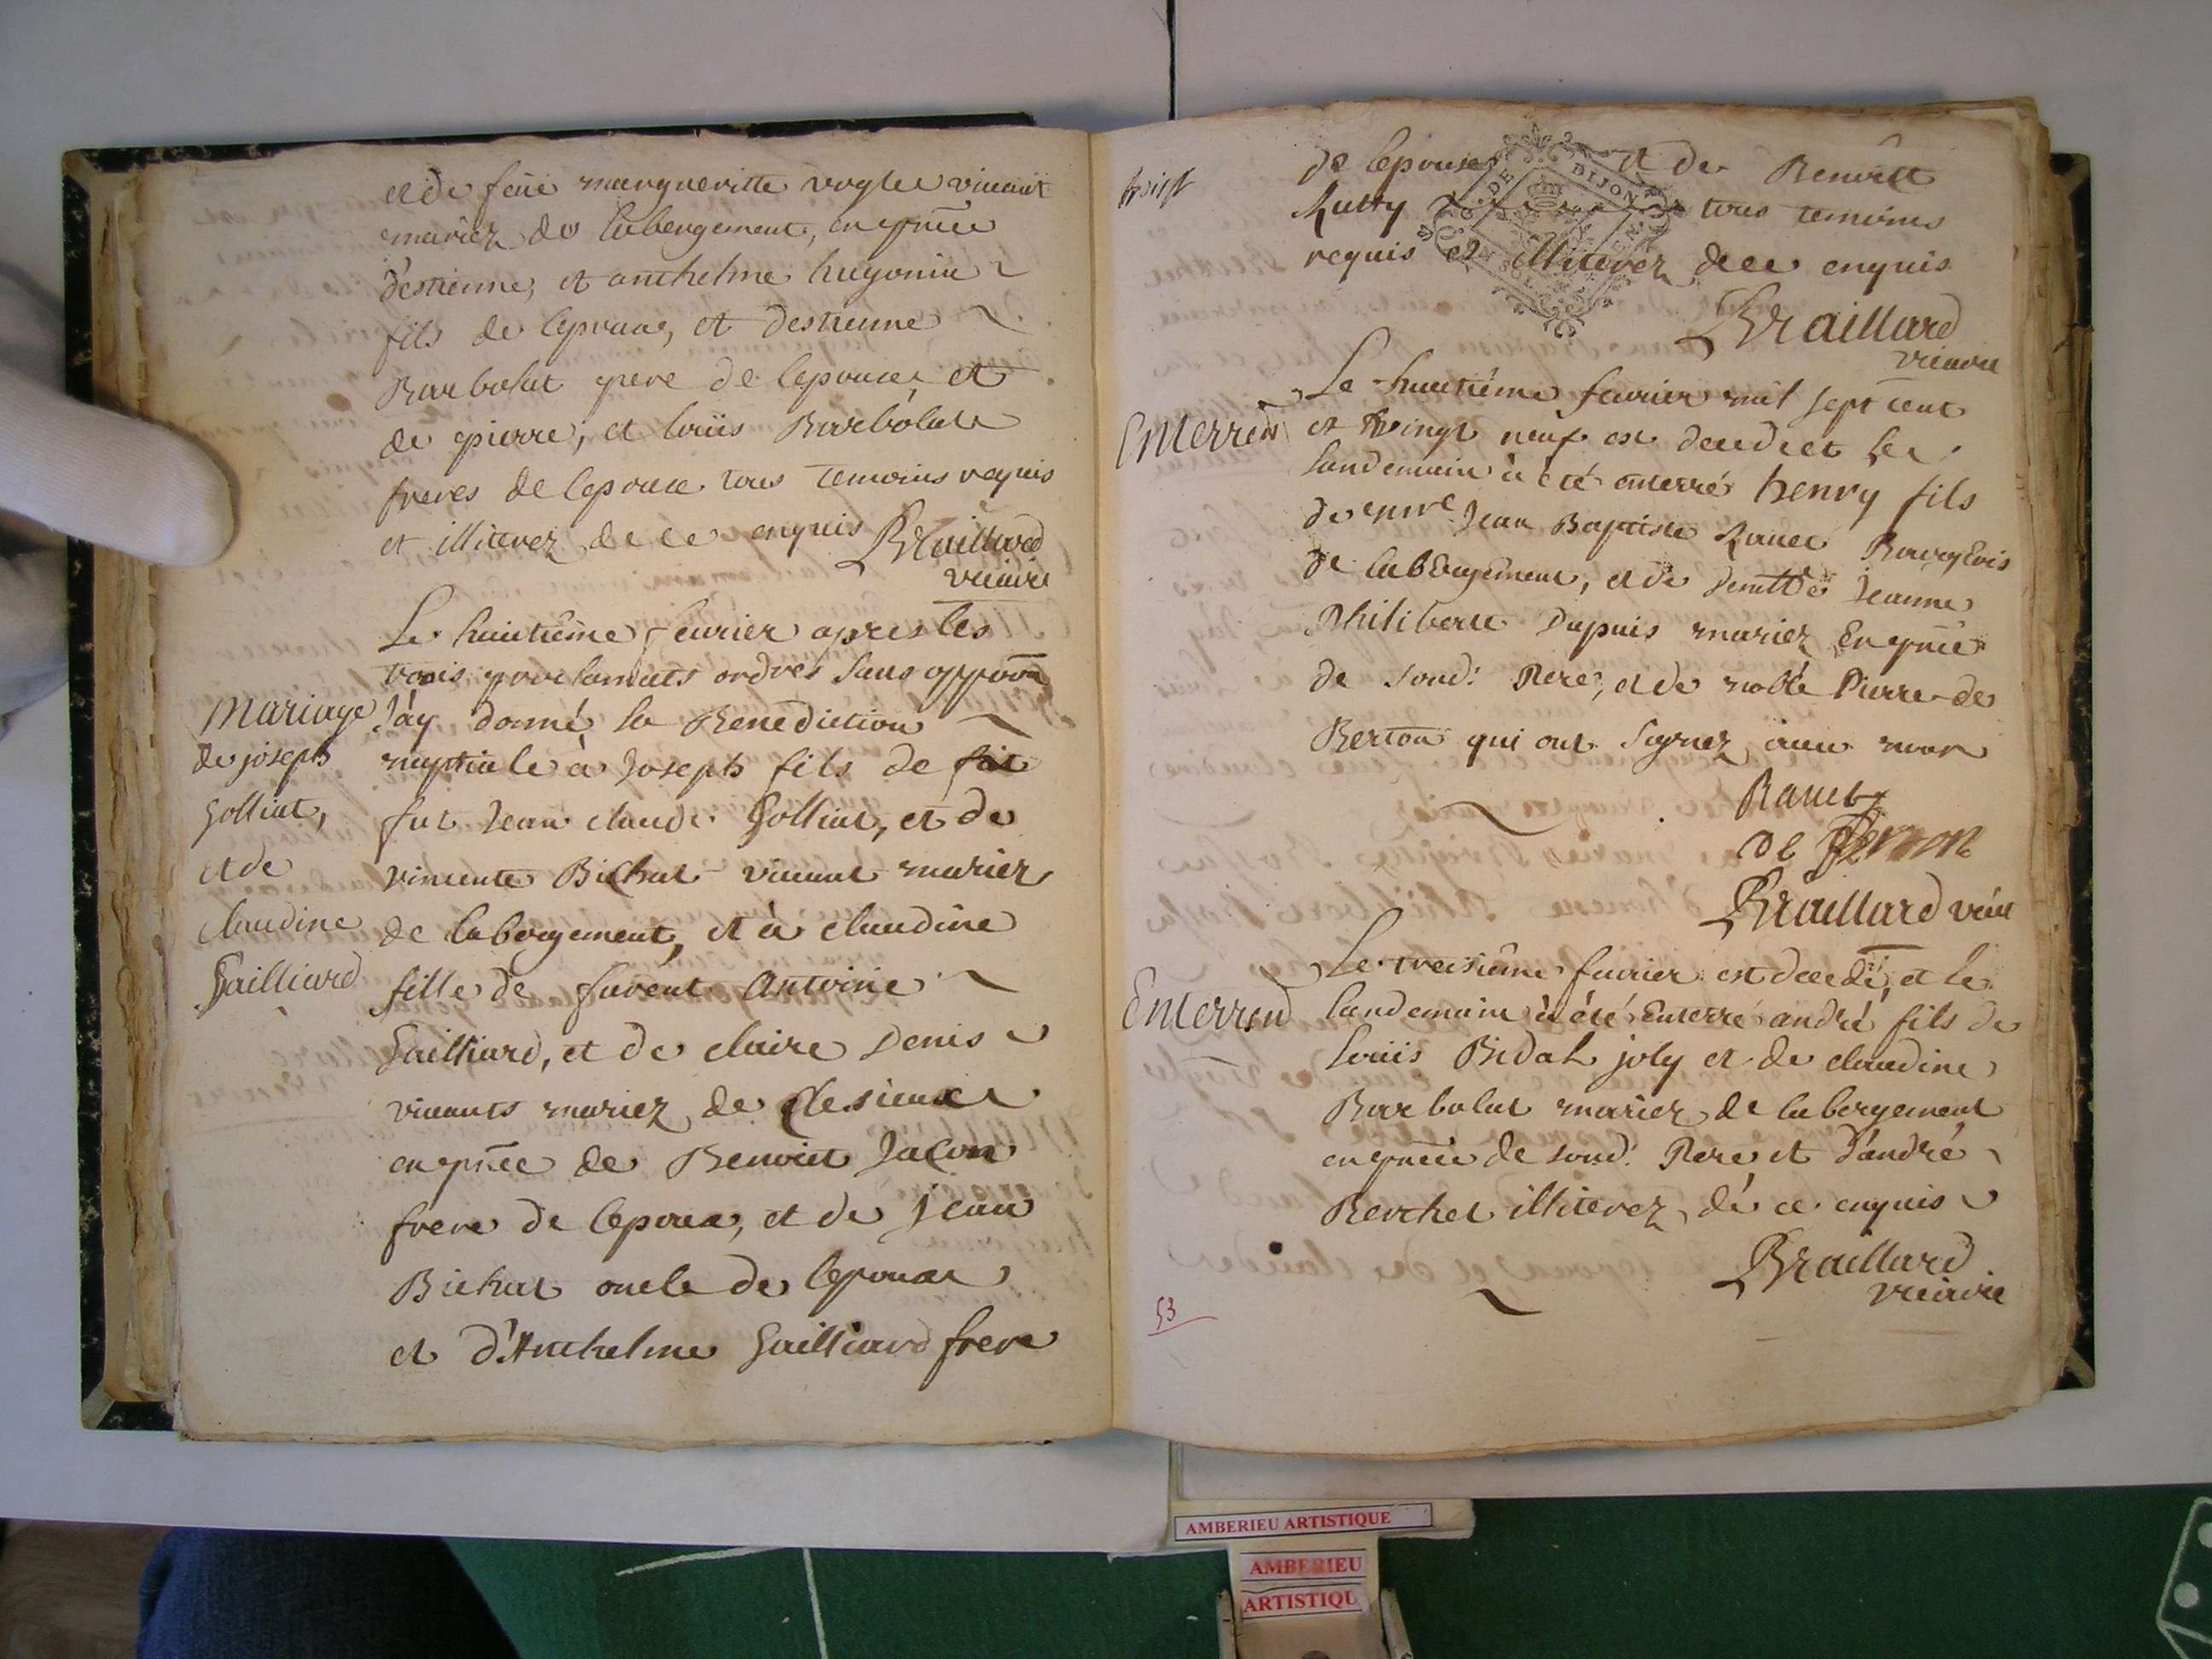 et de feüe margueritte vuglie vivant
mariez de labergement, en pnce
d'estienne, et anthelme hugonin
fils de lepoux, et destienne
Barbolat pere de lepouse, et
de pierre, et loüis Barbolat
freres de lepouse tous temoins requis
et illiterez de ce enquis Braillard
vicaire
Le huitiême fevrier apres les
trois proclamats ordres sans oppoōn
Mariage
de joseph
Golliat,
et de
claudine
Gailliard
j'ay donné la Benediction
nuptiale à Joseph fils de
fut Jean claude Golliat, et de
vincente Bichat vivant mariez
de labergement, et à claudine
fille de furent Antoine
Gailliard, et de claire Denis
vivants mariez de
en pnce de Benoict Jacon
frere de lepoux, et de Jean
Bichat oncle de lepoux
et d'Anthelme Gailliard frere
de lepouse et de Benoict
Rutty tous temoins
requis et illiterez de ce enquis
Braillard
vicaire
DE DIJON
Enterremt
Le huitiême fevrier mil sept cent
et vingt neuf est decedé et le
landemain à été enterré henry fils
de Jean Baptiste Ravet Bourgeois
de labergement, et de demlle Jeanne
Philiberte Dupuis mariez En pnce
de soud: Pere, et de noble Pierre de
Berton qui ont signez avec moy
Ravet
De Berton
Braillard vicaire
Enterremt
Le treisiême fevrier est decedé, et le
landemain à été Enterré andré fils de
Loüis Bidal joly et de claudine
Barbolat mariez de labergement
en pnce de soud: Pere et d'andré
Berchet illiterez, de ce enquis
Braillard
vicaire
53
AMBERIEU ARTISTIQUE
AMBERIEU
ARTISTIQU